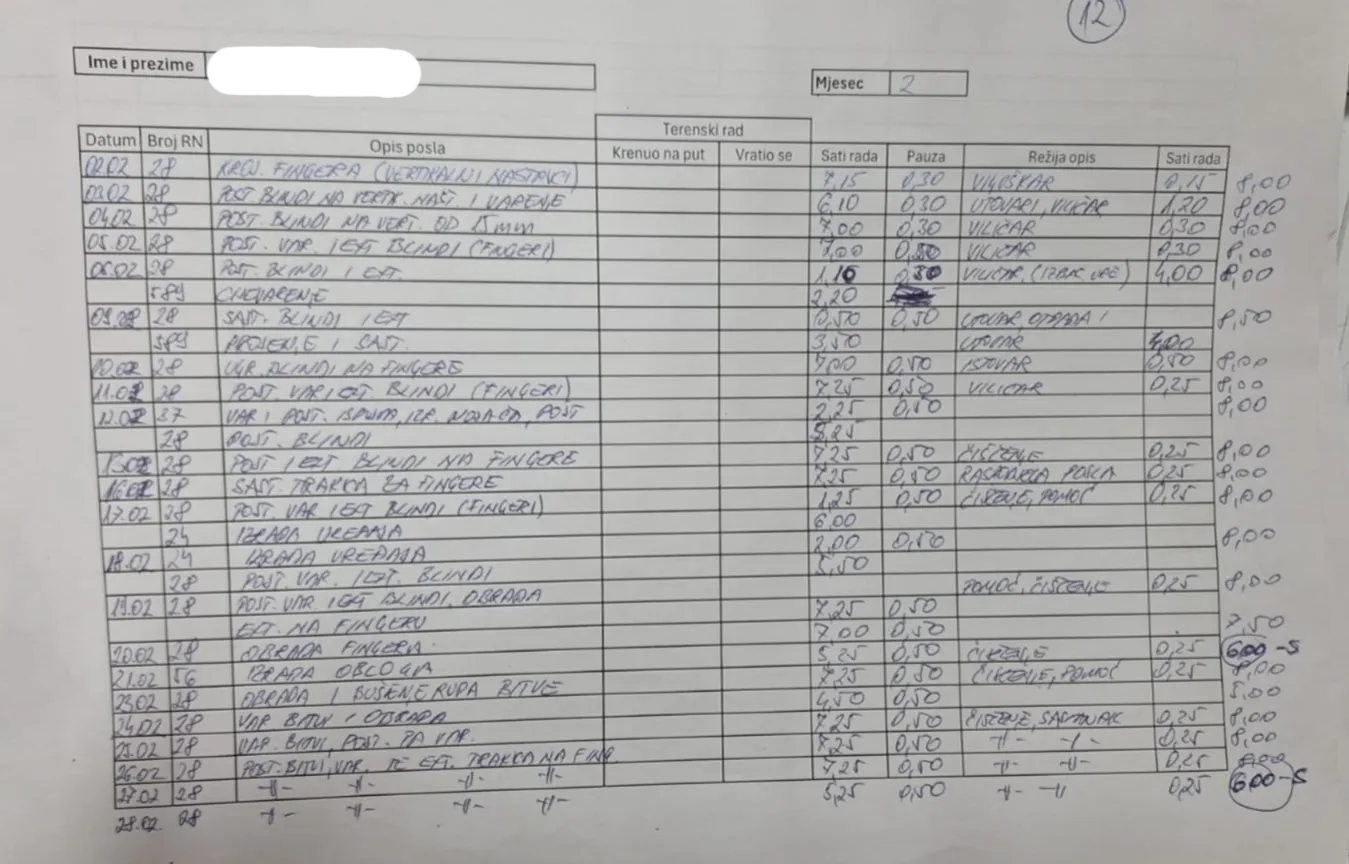 12
Ime i prezime
Mjesec 2
Terenski rad
Datum Broj RN Opis posla Krenuo na put Vratio se Sati rada Pauza Režija opis Sati rada
02.02 28 KROJ. FINGERA (VERTIKALNI NASTAVCI) 7,15 0,30 VILIČKAR 0,15 8,00
03.02 28 POST. BLINDI NA VERTK. NAST. I VARENJE 6,10 0,30 UTOVARI, VILIČAR 1,20 8,00
04.02 28 POST. BLINDI NA VERT. OD 15mm 7,00 0,30 VILIČAR 0,30 8,00
05.02 28 POST. VAR. I EXT BLINDI (FINGERI) 7,00 0,30 VILIČAR 0,30 8,00
06.02 28 POST. BLINDI I EXT. 1,10 0,30 VILIČAR, 4,00 8,00
589 2,20
09.02 28 SAST. BLINDI I EXT 0,50 0,50 UTOVAR OTPADA I 8,50
589 I SAST. 3,50 UTOVAR 4,00
10.02 28 UGR. BLINDI NA FINGERE 7,00 0,50 ISTOVAR 0,50 8,00
11.02 28 POST. VAR I EXT. BLINDI (FINGERI) 7,25 0,50 VILIČAR 0,25 8,00
12.02 37 VAR I POST. ISPUHA, IZR. NOSAČA, POST 2,25 0,50 8,00
28 POST. BLINDI 5,25
13.02 28 POST I EXT. BLINDI NA FINGERE 7,25 0,50 ČIŠĆENJE 0,25 8,00
16.02 28 SAST. TRAKKA ZA FINGERE 7,25 0,50 RASPODJELA POSLA 0,25 8,00
17.02 28 POST VAR I EXT BLINDI (FINGERI) 1,25 0,50 ČIŠĆENJE, POMOĆ 0,25 8,00
24 IZRADA UREĐAJA 6,00
18.02 24 IZRADA UREĐAJA 2,00 0,50 8,00
28 POST. VAR. I EXT. BLINDI 5,50
19.02 28 POST. VAR. I EXT BLINDI, OBRADA 7,25 0,50 POMOĆ, ČIŠĆENJE 0,25 8,00
EXT. NA FINGERU
20.02 28 OBRADA FINGERA. 7,00 0,50 7,50
21.02 56 IZRADA OBLOGA 5,25 0,50 ČIŠĆENJE 0,25 6,00 -S
23.02 28 OBRADA I BUŠENJE RUPA BITVE 7,25 0,50 ČIŠĆENJE, POMOĆ 0,25 8,00
24.02 28 VAR BITVI I OBRADA 4,50 0,50 5,00
25.02 28 VAR. BITVI, POST. ZA VAR. 7,25 0,50 ČIŠĆENJE, SASTANAK 0,25 8,00
26.02 28 POST. BITVI, VAR. TE EXT. TRAKKA NA FING. 7,25 0,50 -||- -||- 0,25 8,00
27.02 28 -||- -||- -||- -||- 7,25 0,50 -||- -||- 0,25 8,00
28.02. 28 -||- -||- -||- -||- 5,25 0,50 -||- -||- 0,25 6,00-S